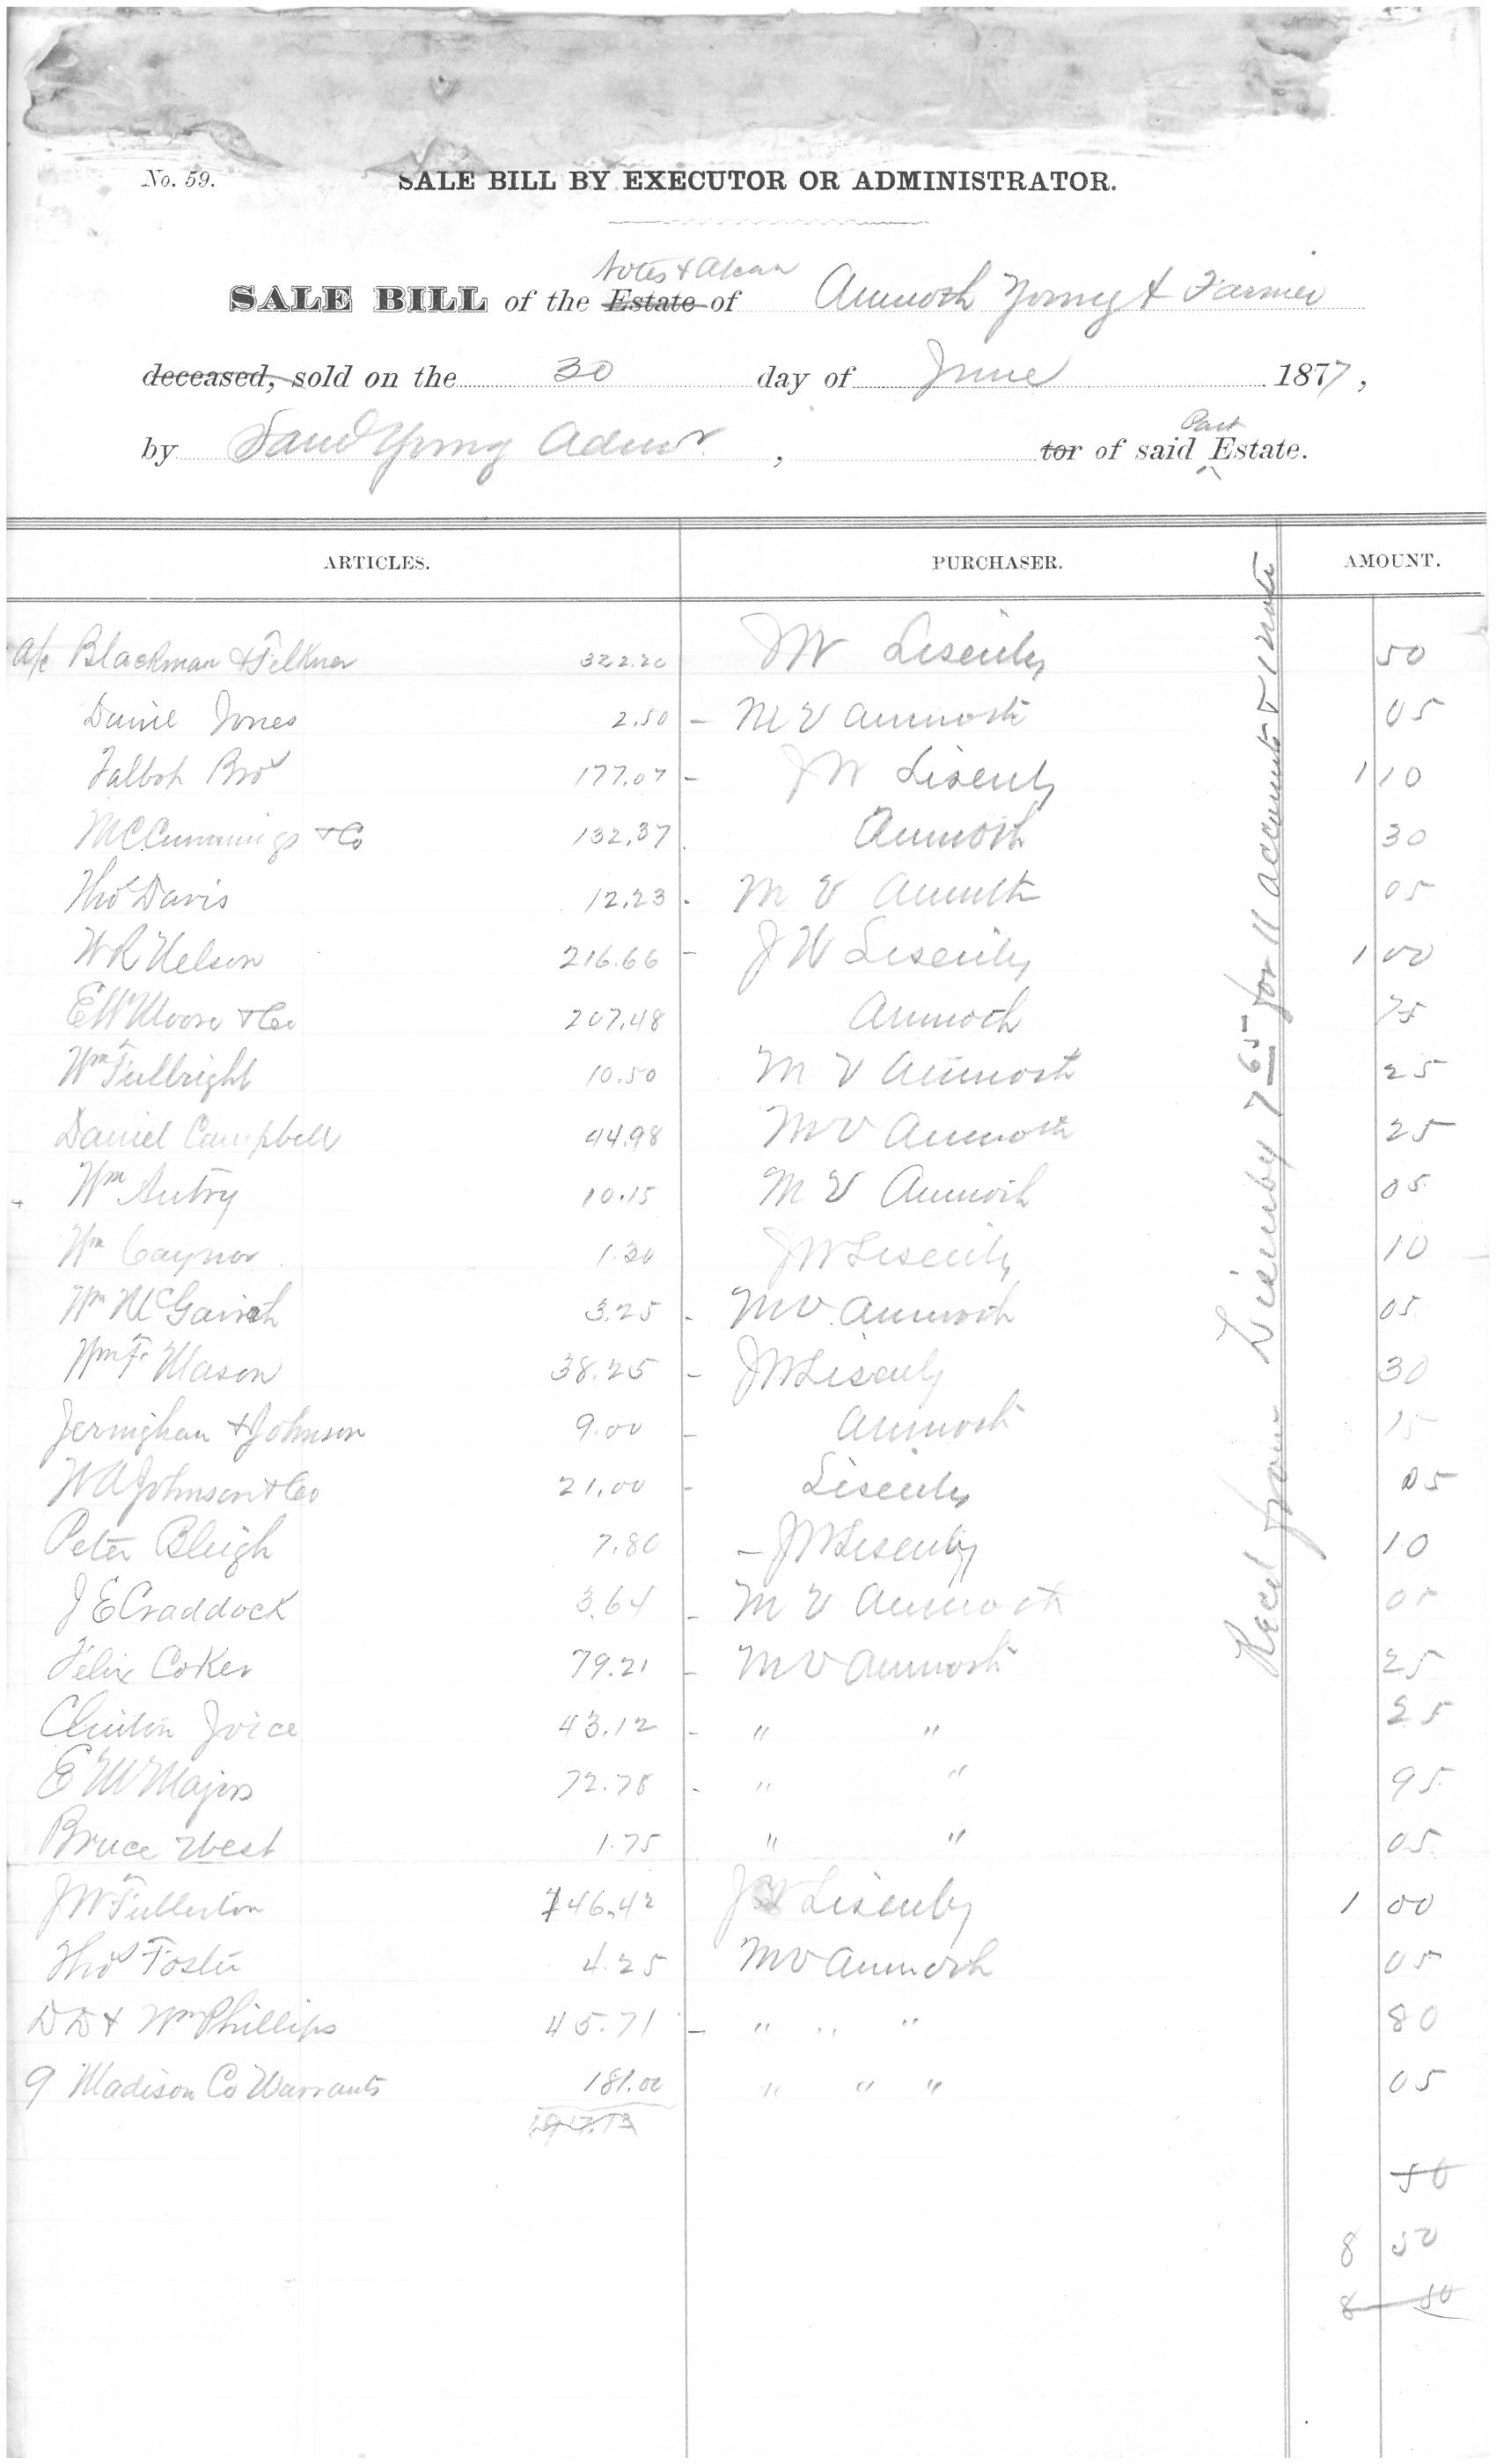 No. 59.
SALE BILL BY EXECUTOR OR ADMINISTRATOR.
Notes &
SALE BILL of the Estate of Ammoth Young & Farmer
deceased, sold on the 30 day of June 1877,
by Saml Young Admr. , tor of said Part Estate.
ARTICLES. PURCHASER. AMOUNT.
a/c Blackman & Felkner 322.20 JW Lisenby 50
Daniel Jones 2.50 — M V Ammoth 05
Talbot Bros 177.07 — JW Lisenby 1 10
McCummings & Co 132.37 Ammoth 30
Thos Davis 12.23 . M V Ammoth 05
W R Nelson 216.66 — J W Lisenby 1 00
E W Moore & Co 207.48 Ammoth 75
Wm Fulbright 10.50 M V Ammoth 25
Daniel Campbell 44.98 M V Ammoth 25
Wm Autry 10.15 M V Ammoth 05
Wm Gaynor 1.30 JW Lisenby 10
Wm 3.25 . M V Ammoth 05
Wm F Mason 38.25 — JW Lisenby 30
Jernighan & Johnson 9.00 — Ammoth 15
W A Johnson & Co 21.00 — Lisenby 05
Peter Bleigh 7.80 — JW Lisenby 10
J E Craddock 3.64 — M V Ammoth 05
Felix Coker 79.21 — M V Ammoth 25
Clinton Joice 43.12 — " " 25
E W Majors 72.78 - " " 95
Bruce West 1.75 " " 05
J W Fullerton 146.42 J W Lisenby 1 00
Thos Foster 4.25 M V Ammoth 05
D D & Wm Phillips 45.71 — " " " 80
9 Madison Co Warrants 181.00 " " " 05
50
8 50
8 50
Recd from Lisenby 7 65 for 11 accounts & 1 note